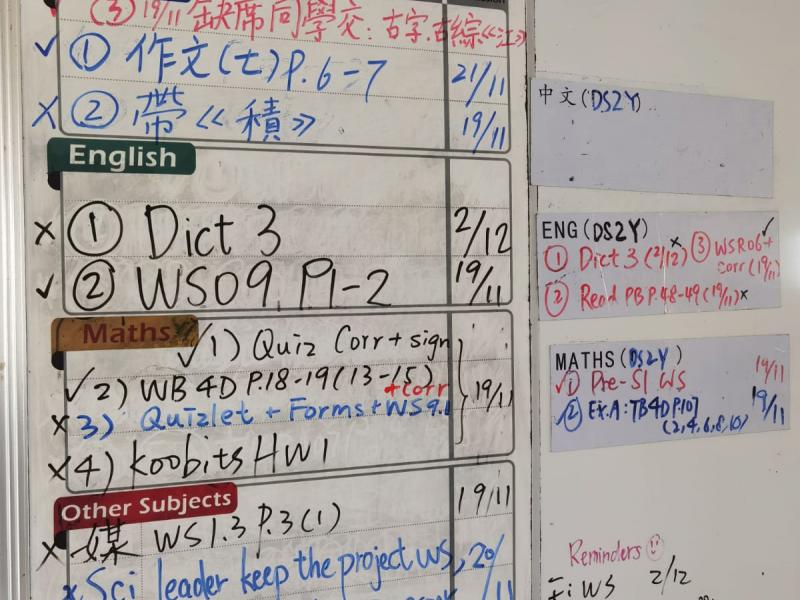 (3) 19/11 缺席同學交: 古字.古綜《江》
✓ ① 作文(七)P.6-7 21/11
× ② 帶《積》 19/11
English
× ① Dict 3 2/12
✓ ② WS09. P1-2 19/11
Maths
✓ 1) Quiz Corr + sign
✓ 2) WB 4D P.18-19 (13-15) + corr 19/11
× 3) Quizlet + Forms + WS9.1
× 4) Koobits HW1
Other Subjects 19/11
× 媒 WS1.3 P.3(1)
× Sci leader keep the project WS, 20/11
中文(DS2Y)
ENG(DS2Y)
① Dict 3 (2/12) × ③ WSR06+ ✓
corr (19/11)
② Read PB P.48-49 (19/11) ×
MATHS(DS2Y)
✓ ① Pre-S1 WS 19/11
✓ ② Ex.A: TB4D P.107 19/11
(2,4,6,8,10)
Reminders
WS 2/12